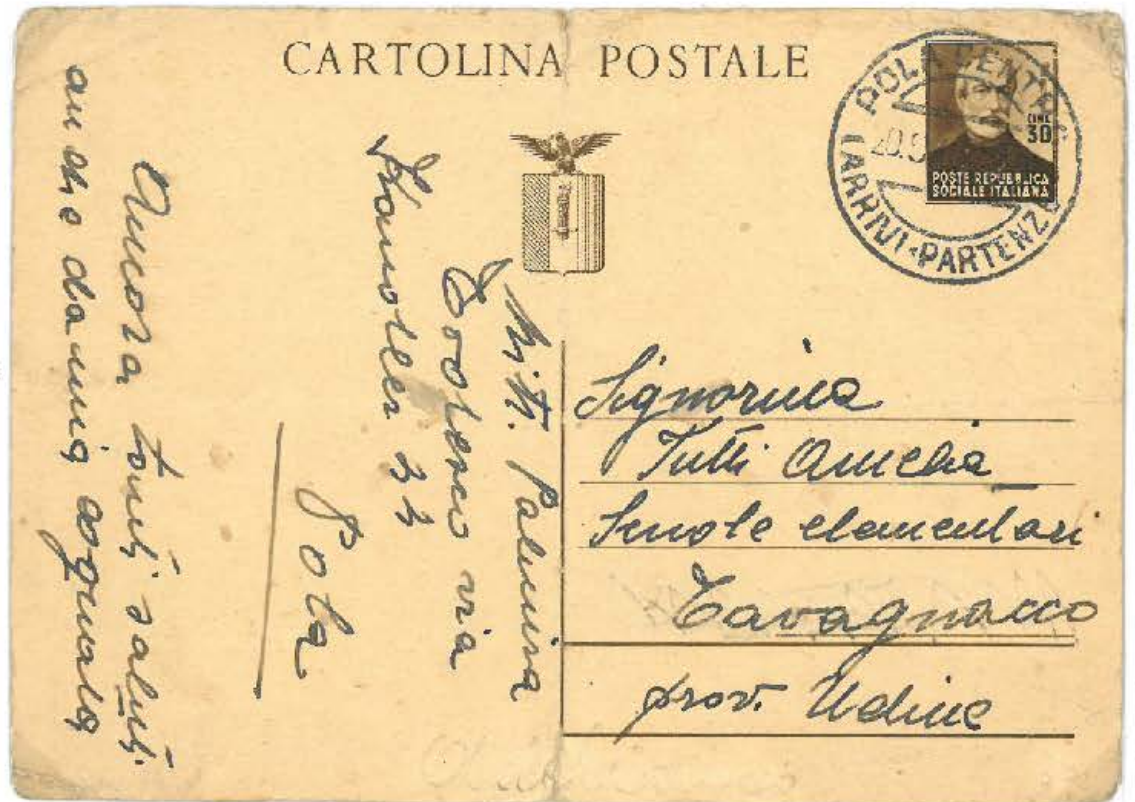 CARTOLINA POSTALE
POLA CENTRO
20.
(ARRIVI-PARTENZE
LIRE
30
POSTE REPUBBLICA
SOCIALE ITALIANA
Signorina
Tutti Amelia
Scuole elementari
Tavagnacco
prov. Udine
Mitt. Palmira
Tedesco via
33
Pola
Ancora tanti saluti
anche da mia cognata